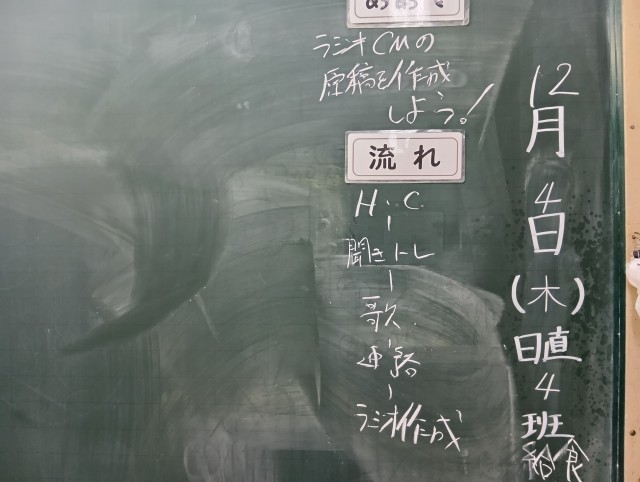 12月4日(木)日直4班給食
めあて
ラジオCMの
原稿を作成
しよう。!
流れ
H.C
|
聞きトレ
|
歌
|
連絡
|
ラジオ作成